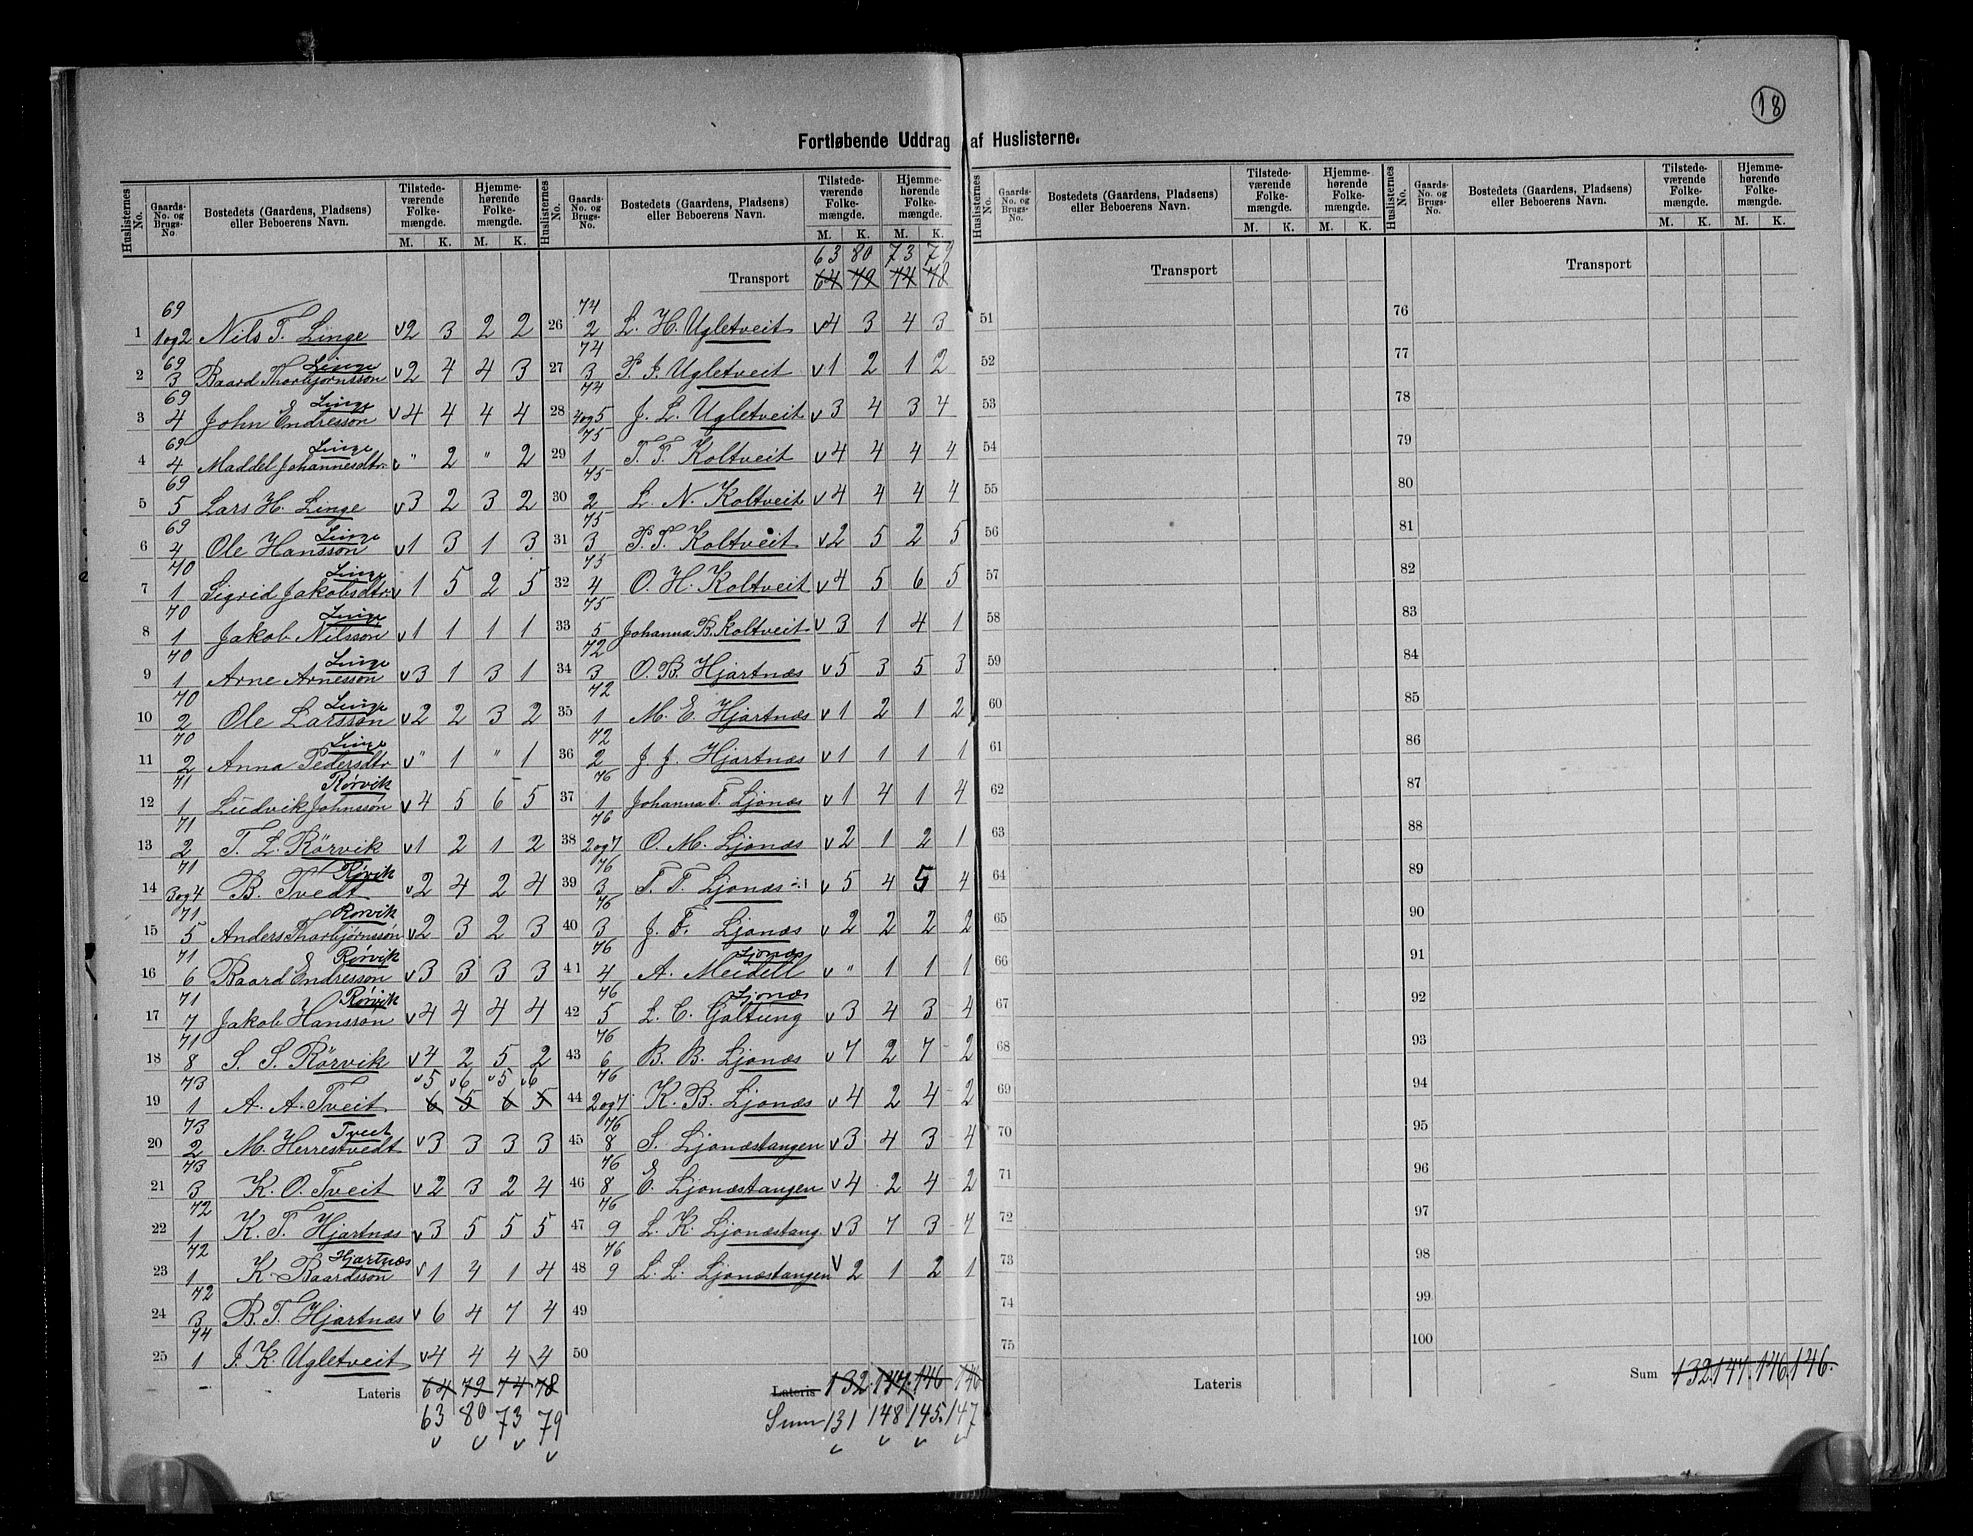 18
Fortløbende Uddrag af Huslisterne.
Huslisternes No. Gaards-No. og Brugs-No. Bostedets (Gaardens, Pladsens) eller Beboerens Navn. Tilstede-værende Folke-mængde. M. K. Hjemme-hørende Folke-mængde. M. K.
1 69 1og2 Nils T. Linge v2 3 2 2
2 69 3 Baard Thorbjørnssøn Linge v2 4 4 3
3 69 4 John Endressøn Linge v4 4 4 4
4 69 4 Maddel Johannesdtr. Linge v " 2 " 2
5 69 5 Lars H. Linge v3 2 3 2
6 69 4 Ole Hanssøn Linge v1 3 1 3
7 70 1 Sigrid Jakobsdtr Linge v1 5 2 5
8 70 1 Jakob Nilssøn Linge v1 1 1 1
9 70 1 Arne Arnessøn Linge v3 1 3 1
10 70 2 Ole Larssøn Linge v2 2 3 2
11 70 2 Anna Pedersdtr Linge v " 1 " 1
12 71 1 Ludvik Johnssøn Rørvik v4 5 6 5
13 71 2 T. L. Rørvik v1 2 1 2
14 71 3og4 B. Tvedt Rørvik v2 4 2 4
15 71 5 Anders Thorbjørnssøn Rørvik v2 3 2 3
16 71 6 Baard Endressøn Rørvik v3 3 3 3
17 71 7 Jakob Hanssøn Rørvik v4 4 4 4
18 71 8 S. S. Rørvik v4 2 5 2
v5 v6 v5 v6
19 73 1 A. A. Tveit 6 5 6 5
20 73 2 M. Herrestvedt Tveit v3 3 3 3
21 73 3 K. O. Tveit v2 3 2 4
22 72 1 K. T. Hjartnæs v3 5 5 5
23 72 1 K. Baardssøn Hjartnæs v1 4 1 4
24 72 3 B. T. Hjartnæs v6 4 7 4
25 74 1 J. K. Ugletveit v4 4 4 4
Lateris 64 79 74 78
63 80 73 79
Huslisternes No. Gaards-No. og Brugs-No. Bostedets (Gaardens, Pladsens) eller Beboerens Navn. Tilstede-værende Folke-mængde. M. K. Hjemme-hørende Folke-mængde. M. K.
63 80 73 79
Transport 64 79 74 78
26 74 2 L. H. Ugletveit v4 3 4 3
27 74 3 P. J. Ugletveit v1 2 1 2
28 74 4og5 J. L. Ugletveit v3 4 3 4
29 75 1 T. T. Koltveit v4 4 4 4
30 75 2 L. N. Koltveit v4 4 4 4
31 75 3 P. T. Koltveit v2 5 2 5
32 75 4 O. H. Koltveit v4 5 6 5
33 75 5 Johanna B. Koltveit v3 1 4 1
34 72 3 O. B. Hjartnæs v5 3 5 3
35 72 1 M. E. Hjartnæs v1 2 1 2
36 72 2 J. J. Hjartnæs v1 1 1 1
37 76 1 Johanna T. Ljonæs v1 4 1 4
38 76 2og7 O. M. Ljonæs v2 1 2 1
39 76 3 T. T. Ljonæs v5 4 5 4
40 76 3 J. T. Ljonæs v2 2 2 2
41 76 4 A. Meidell Ljonæs v " 1 1 1
42 76 5 L. C. Galtung Ljonæs v3 4 3 4
43 76 6 B. B. Ljonæs v7 2 7 2
44 76 2og7 K. B. Ljonæs v4 2 4 2
45 76 8 S. Ljonæstangen v3 4 3 4
46 76 8 E. Ljonæstangen v4 2 4 2
47 76 9 L. K. Ljonæstang. v3 7 3 7
48 76 9 L. L. Ljonæstangen v2 1 2 1
49
50
Lateris 132. 147. 146 146
Sum 131 148 145. 147
Huslisternes No. Gaards-No. og Brugs-No. Bostedets (Gaardens, Pladsens) eller Beboerens Navn. Tilstede-værende Folke-mængde. M. K. Hjemme-hørende Folke-mængde. M. K.
Transport
51
52
53
54
55
56
57
58
59
60
61
62
63
64
65
66
67
68
69
70
71
72
73
74
75
Lateris
Huslisternes No. Gaards-No. og Brugs-No. Bostedets (Gaardens, Pladsens) eller Beboerens Navn. Tilstede-værende Folke-mængde. M. K. Hjemme-hørende Folke-mængde. M. K.
Transport
76
77
78
79
80
81
82
83
84
85
86
87
88
89
90
91
92
93
94
95
96
97
98
99
100
Sum 132. 147. 146. 146.